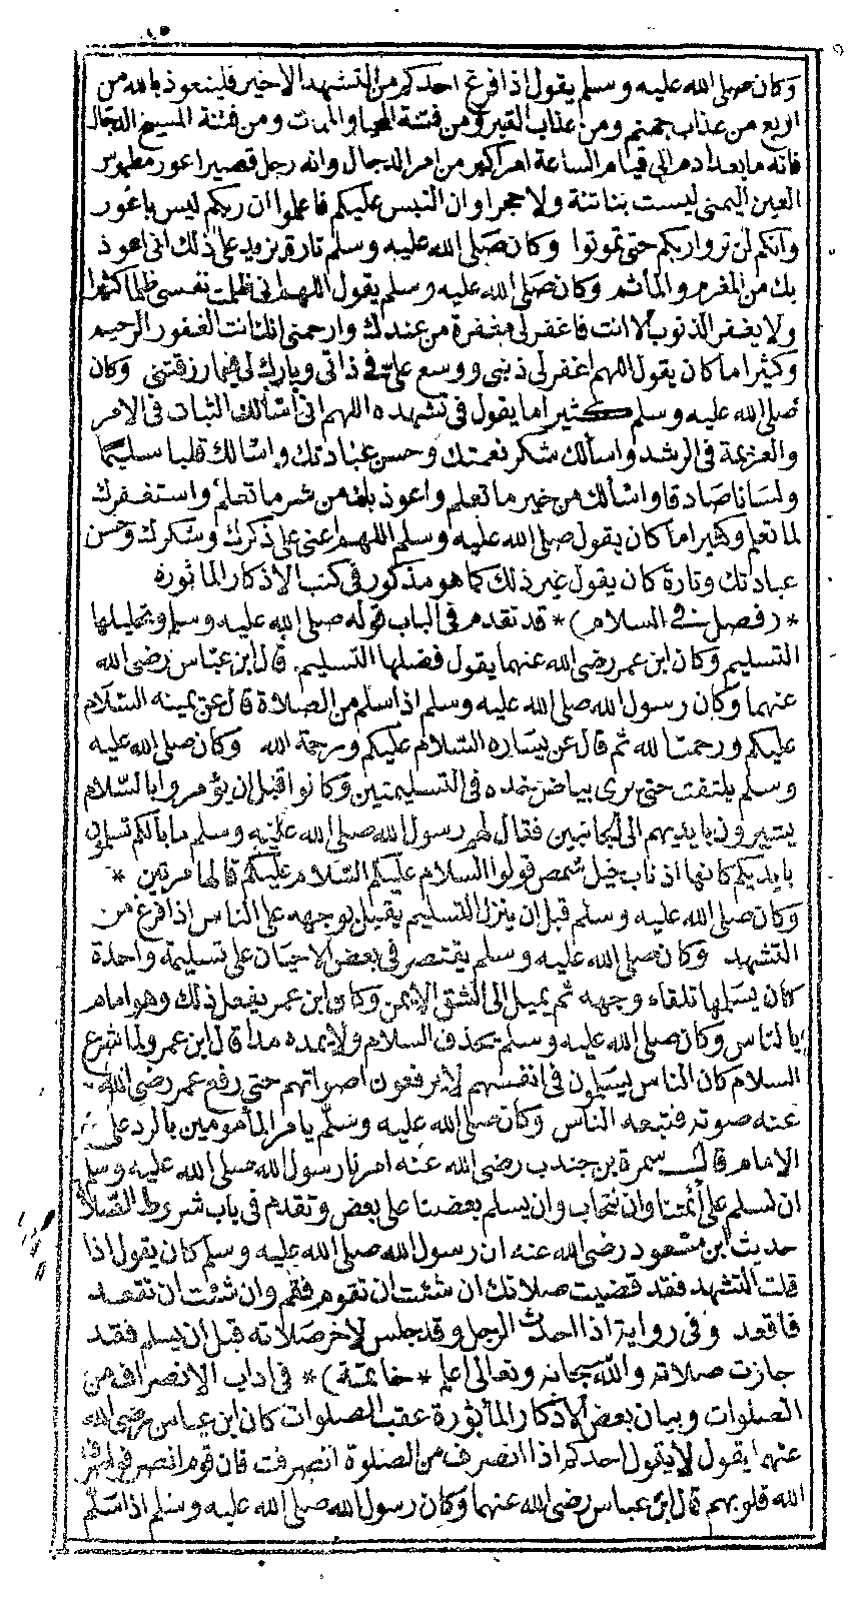 وكان صلى الله عليه وسلم يقول اذا فرغ احدكم من التشهد الاخير فليتعوذ بالله من
اربع من عذاب جهنم ومن عذاب القبر ومن فتنة المحيا والممات ومن فتنة المسيخ الدجال
فانه ما بعد ادم الى قيام الساعة امر اكبر من امر الدجال وانه رجل قصير اعور مطموس
العين اليمنى ليست بناتئة ولا حجرا وان التبس عليكم فاعلموا ان ربكم ليس باعور
وانكم لن تروا ربكم حتى تموتوا وكان صلى الله عليه وسلم تارة يزيد على ذلك انى اعوذ
بك من المغرم والمأثم وكان صلى الله عليه وسلم يقول اللهم انى ظلمت نفسى ظلما كثيرا
ولا يغفر الذنوب الا انت فاغفر لى مغفرة من عندك وارحمنى انك انت الغفور الرحيم
وكثيرا ما كان يقول اللهم اغفر لى ذنبى ووسع على فى ذاتى وبارك لى فيما رزقتنى وكان
صلى الله عليه وسلم كثيرا ما يقول فى تشهده اللهم انى أسألك الثبات فى الامر
والعزيمة فى الرشد واسألك شكر نعمتك وحسن عبادتك واسالك قلبا سليما
ولسانا صادقا واسالك من خير ما تعلم واعوذ بك من شر ما تعلم واستغفرك
لما تعلم وكثيرا ما كان يقول صلى الله عليه وسلم اللهم اعنى على ذكرك وشكرك وحسن
عبادتك وتارة كان يقول غير ذلك كما هو مذكور فى كتب الاذكار الماثورة
* (فصل فى السلام) * قد تقدم فى الباب قوله صلى الله عليه وسلم وتحليلها
التسليم وكان ابن عمر رضى الله عنهما يقول فضلها التسليم قال ابن عباس رضى الله
عنهما وكان رسول الله صلى الله عليه وسلم اذا سلم من الصلاة قال عن يمينه السلام
عليكم ورحمت الله ثم قال عن يساره السلام عليكم ورحمة الله وكان صلى الله عليه
وسلم يلتفت حتى يرى بياض خده فى التسليمتين وكانوا قبل ان يؤمروا بالسلام
يشيرون بايديهم الى الجانبين فقال لهم رسول الله صلى الله عليه وسلم ما بالكم تسلمون
بايديكم كانها اذناب خيل شمص قولوا السلام عليكم السلام عليكم قالها مرتين *
وكان صلى الله عليه وسلم قبل ان ينزل التسليم يقبل بوجهه على الناس اذا فرغ من
التشهد وكان صلى الله عليه وسلم يقتصر فى بعض الاحيان على تسليمة واحدة
كان يسلمها تلقاء وجهه ثم يميل الى الشق الايمن وكان ابن عمر يفعل ذلك وهو امام
بالناس وكان صلى الله عليه وسلم يحذف السلام ولا يمده مدا قال ابن عمر ولما شرع
السلام كان الناس يسلمون فى انفسهم لا يرفعون اصواتهم حتى رفع عمر رضى الله
عنه صوته فتبعه الناس وكان صلى الله عليه وسلم يامر المأمومين بالرد على
الامام قال سمرة بن جندب رضى الله عنه امرنا رسول الله صلى الله عليه وسلم
ان نسلم على أئمتنا وان نتحاب وان يسلم بعضنا على بعض وتقدم فى باب شروط الصلاة
حديث ابن مسعود رضى الله عنه ان رسول الله صلى الله عليه وسلم كان يقول اذا
قلت التشهد فقد قضيت صلاتك ان شئت ان تقوم فقم وان شئت ان تقعد
فاقعد وفى رواية اذا احدث الرجل وقد جلس لاخر صلاته قبل ان يسلم فقد
جازت صلاته والله سبحانه وتعالى اعلم * خاتمة) * فى اداب الانصراف من
الصلوات وبيان بعض الاذكار المأثورة عقب الصلوات كان ابن عباس رضى الله
عنهما يقول لا يقول احدكم اذا انصرف من الصلوة انصرفت فان قوم انصرفوا صرف
الله قلوبهم قال ابن عباس رضى الله عنهما وكان رسول الله صلى الله عليه وسلم اذا سلم